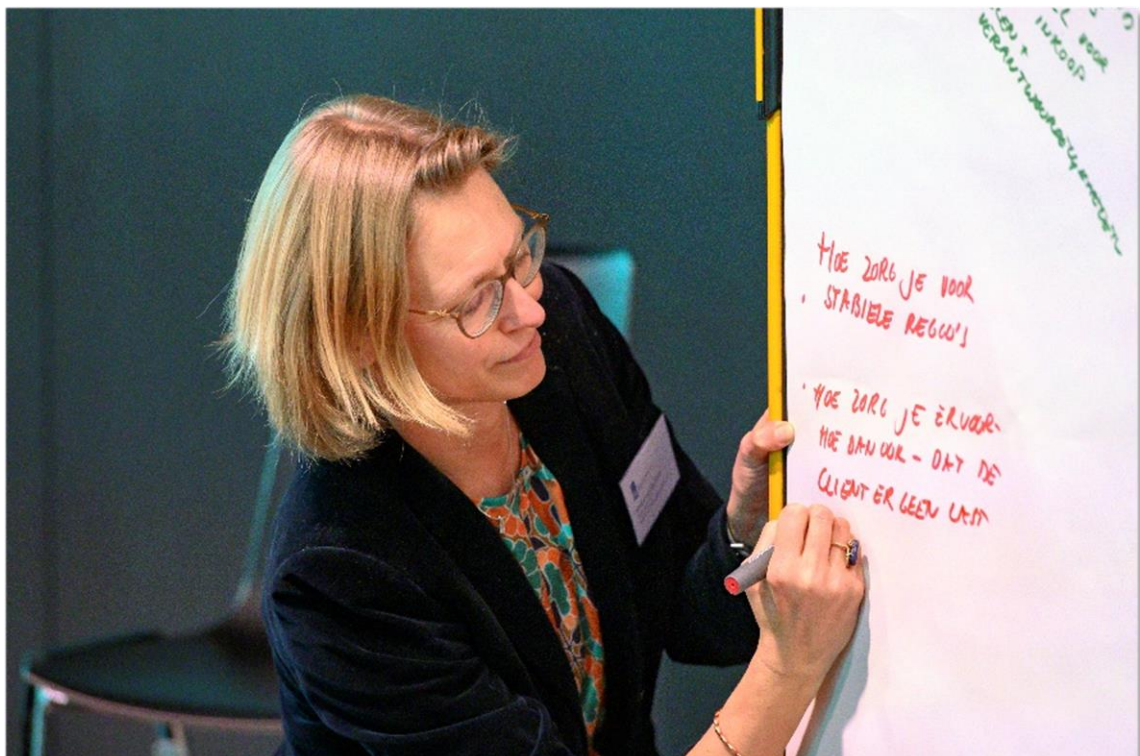 VOOR
INKOOP
VERANTWOORDELIJKHEDEN
HOE ZORG JE VOOR
• STABIELE REGIO'S
• HOE ZORG JE ERVOOR-
HOE DAN OOK - DAT DE
CLIENT ER GEEN LAST